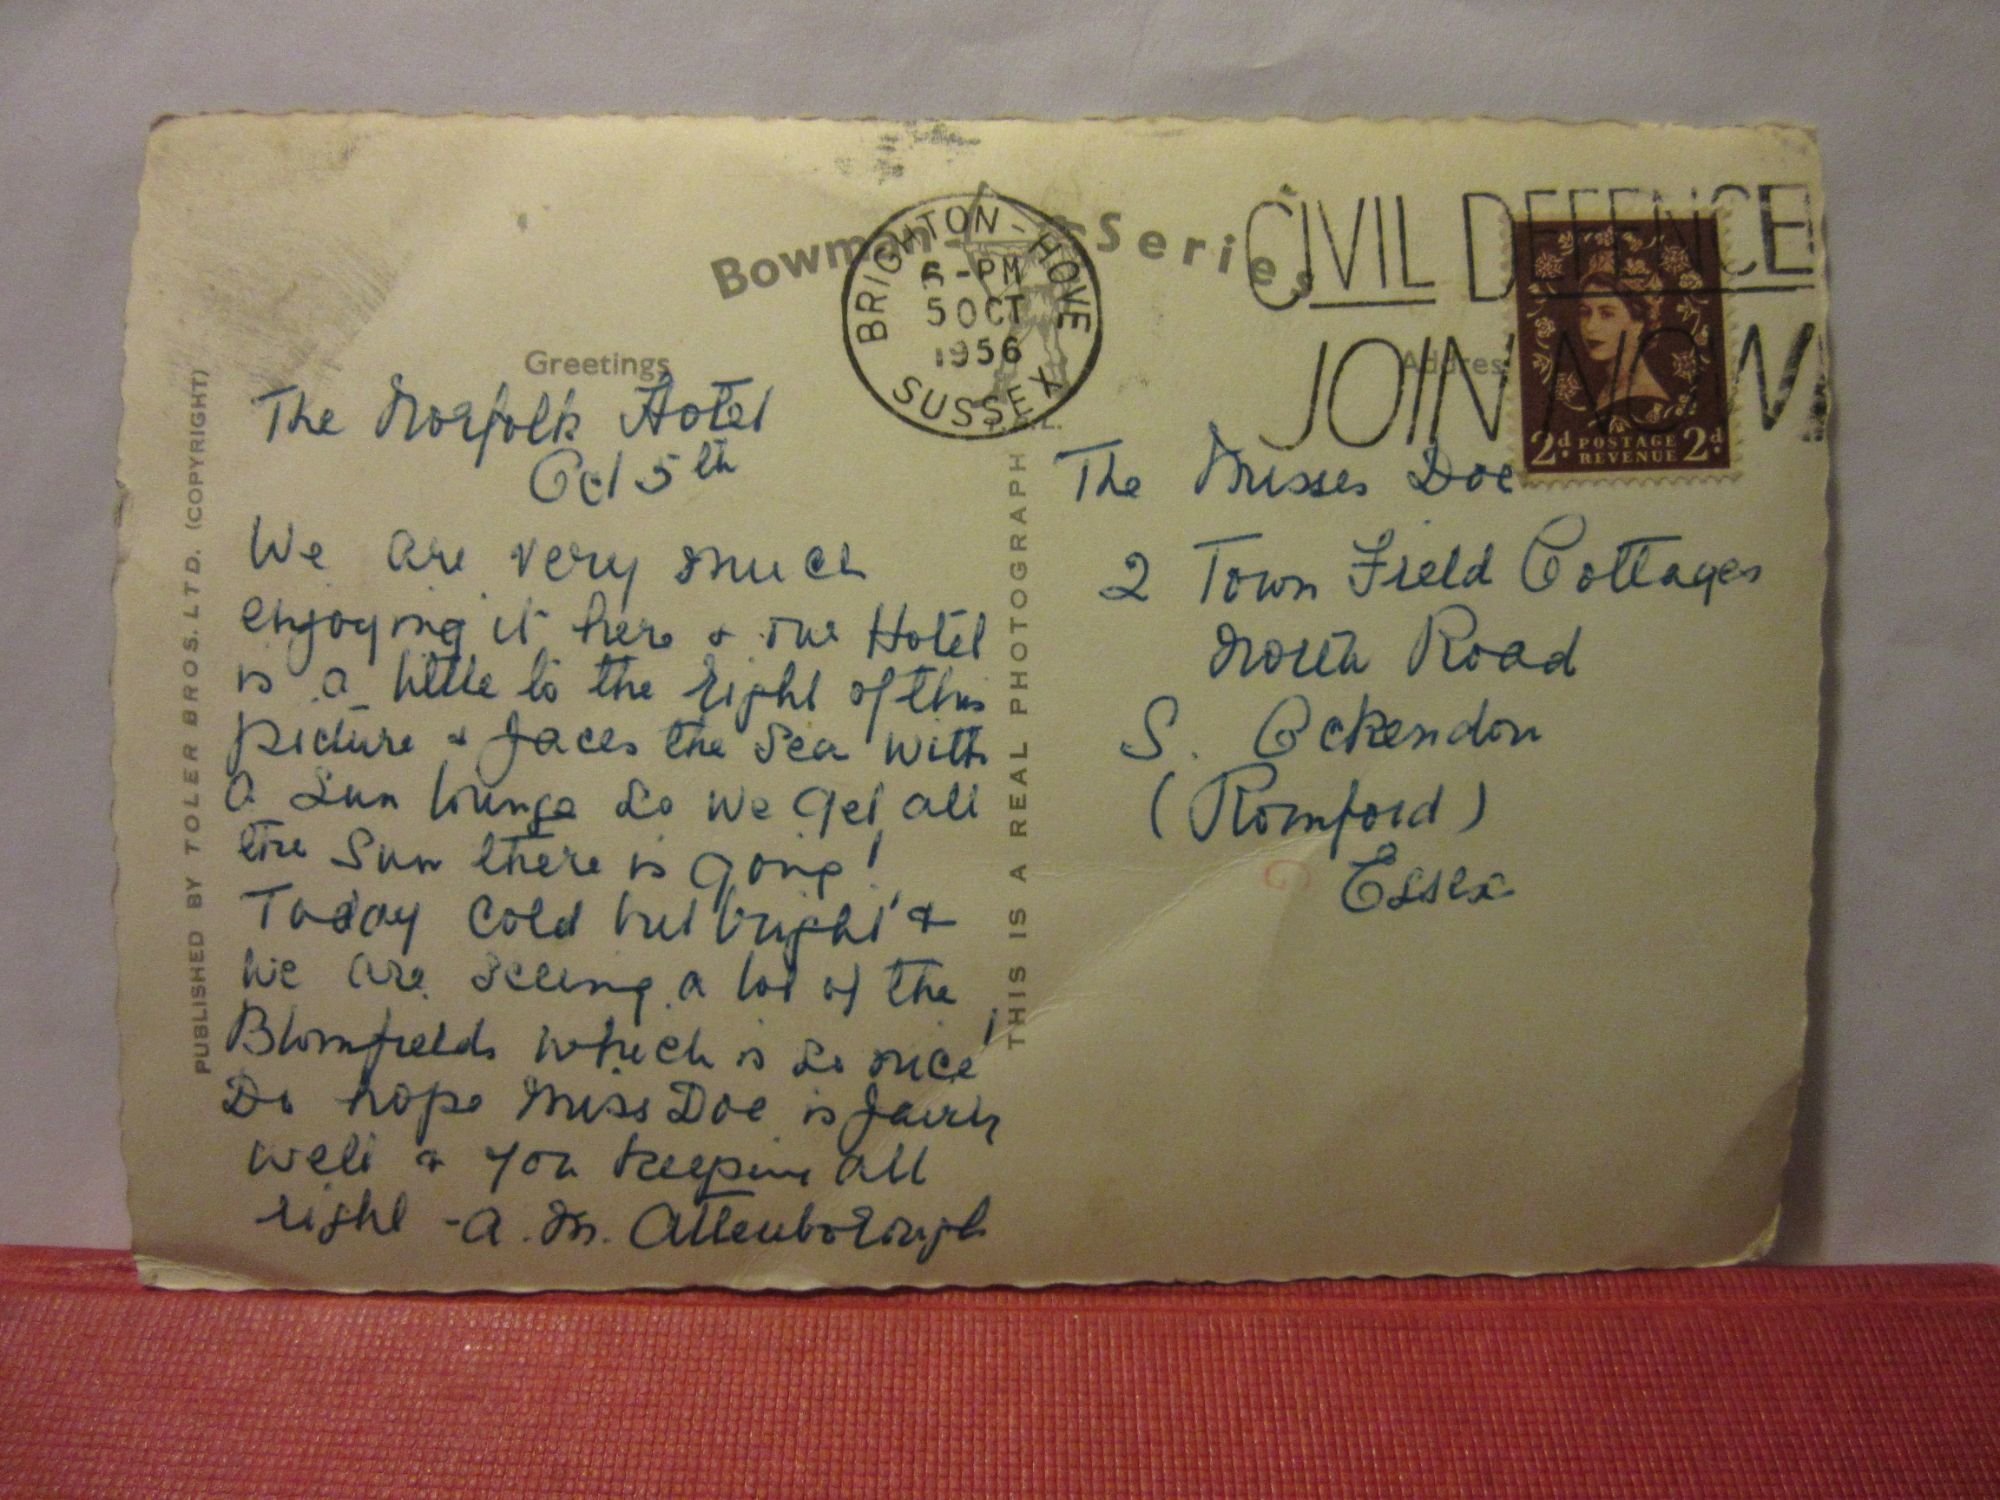 Bowman - Series
BRIGHTON - HOVE
6 - PM
5 OCT
1956
SUSSEX
CIVIL DEFENCE
JOIN NOW
2d POSTAGE 2d
REVENUE
Greetings
Address
PUBLISHED BY TOLER BROS. LTD. (COPYRIGHT)
THIS IS A REAL PHOTOGRAPH
The Norfolk Hotel
Oct 5th
We are very much
enjoying it here & our Hotel
is a little to the right of this
picture & faces the Sea with
a Sun lounge so we get all
the Sun there is going!
Today cold but bright &
we are seeing a lot of the
Blomfields which is so nice!
Do hope Miss Doe is fairly
well & you keeping all
right - A. M. Attenborough
The Misses Doe
2 Town Field Cottages
North Road
S. Ockendon
(Romford)
Essex